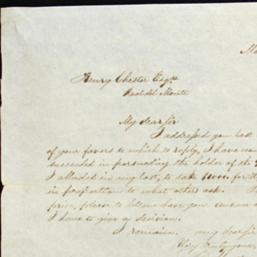 Henry Chester Esqre
Real del Monte
My dear Sir
I addressed you last
of your favors to which to reply, I have now
succeeded in persuading the holder of the
I alluded in my last, to take
in proportion to what others ask.
price, please to let me have your answer
I have to give a decision.
I remain, my dear Sir